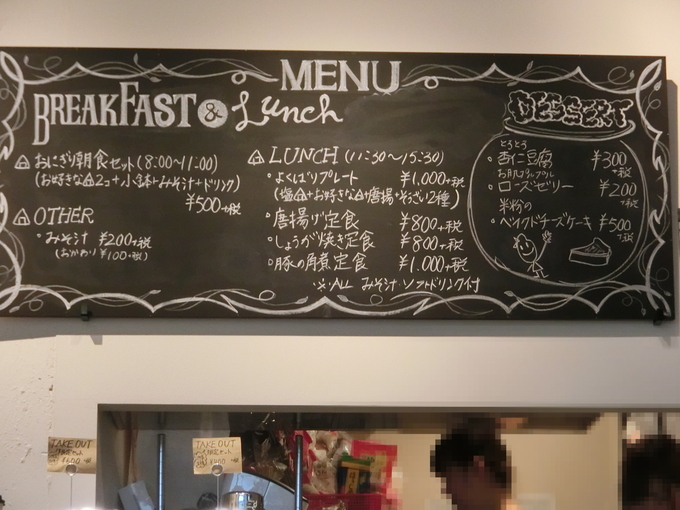 MENU
BREAKFAST & Lunch
おにぎり朝食セット(8:00~11:00)
(お好きな🍙2コ+小鉢+みそ汁+ドリンク)
¥500+税
OTHER
・みそ汁 ¥200+税
(おかわり ¥100+税)
LUNCH (11:30~15:30)
・よくばりプレート ¥1,000+税
(塩🍙+お好きな🍙+唐揚+そうざい2種)
・唐揚げ定食 ¥800+税
・しょうが焼き定食 ¥800+税
・豚の角煮定食 ¥1,000+税
※ALL みそ汁・ソフトドリンク付
DESSERT
とろとろ
・杏仁豆腐 ¥300+税
お肌プルプル
・ローズゼリー ¥200+税
米粉の
・ベイクドチーズケーキ ¥500+税
TAKE OUT
¥600
TAKE OUT